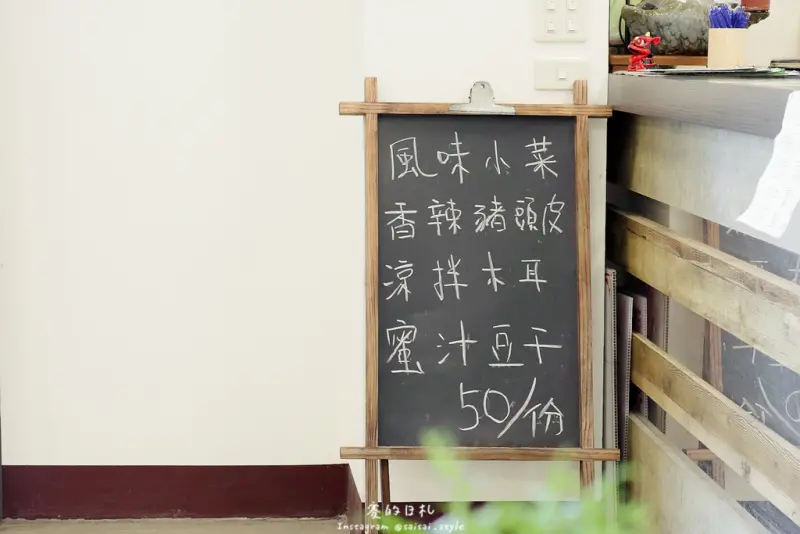 風味小菜
香辣豬頭皮
涼拌木耳
蜜汁豆干
50/份
的日札
Instagram @saisai_style